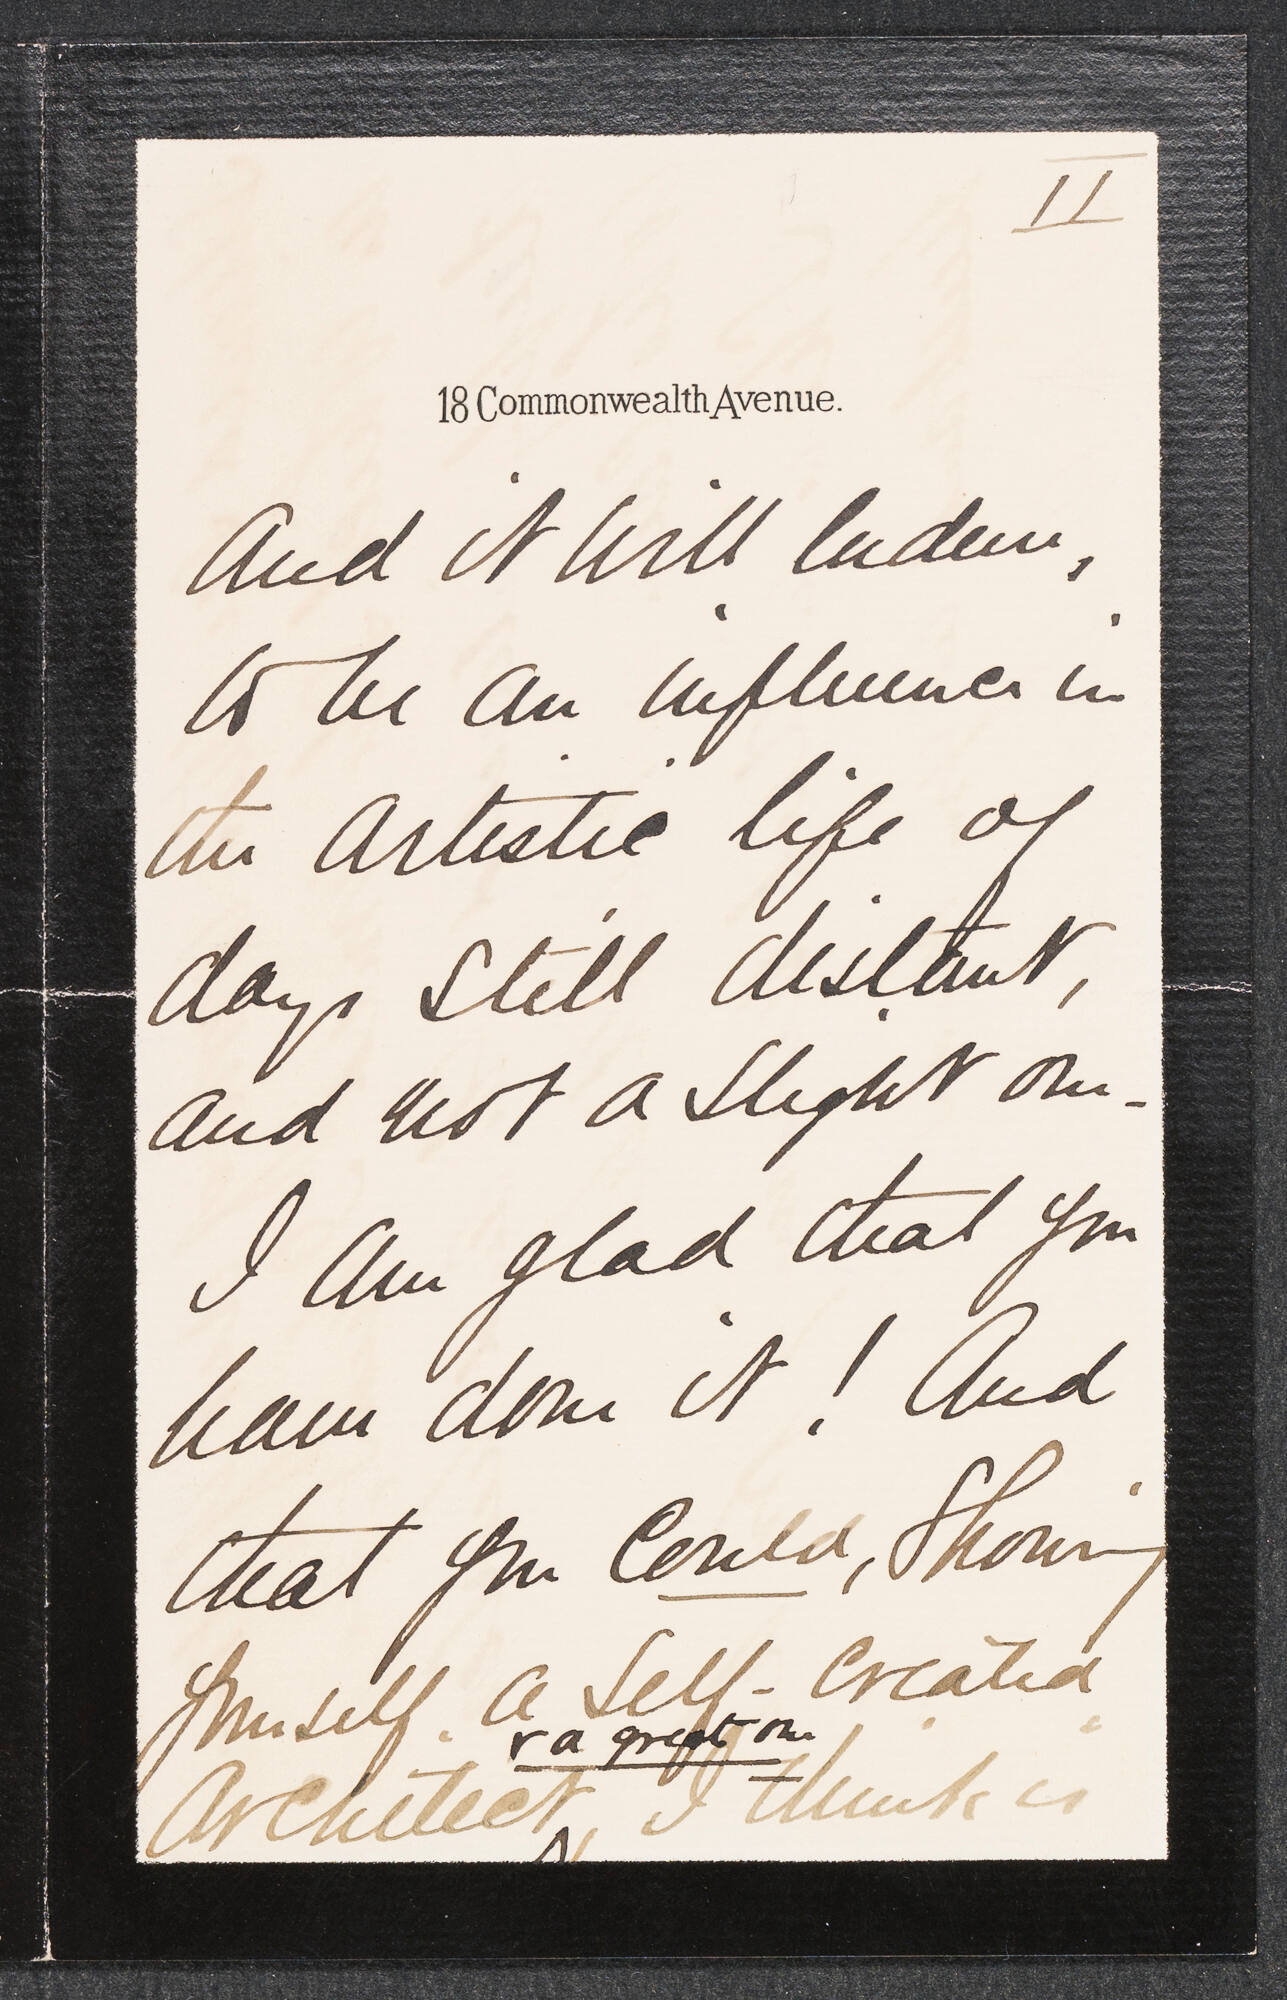 II
18 Commonwealth Avenue.
And it will endure,
to be an influence in
the artistic life of
days still distant,
and not a slight one -
I am glad that you
have done it! And
that you could, showing
yourself. a self-created
& a great one
Architect, I think is